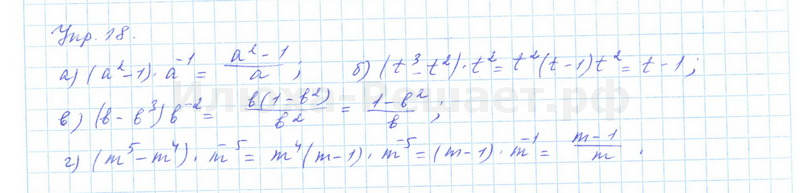 Упр. 18.
а) (a²-1)·a⁻¹ = \frac{a²-1}{a}; б) (t³-t²)·t² = t²(t-1)t² = t-1;
в) (b-b³)b⁻² = \frac{b(1-b²)}{b²} = \frac{1-b²}{b};
г) (m⁵-m⁴)·m⁻⁵ = m⁴(m-1)·m⁻⁵ = (m-1)·m⁻¹ = \frac{m-1}{m}.